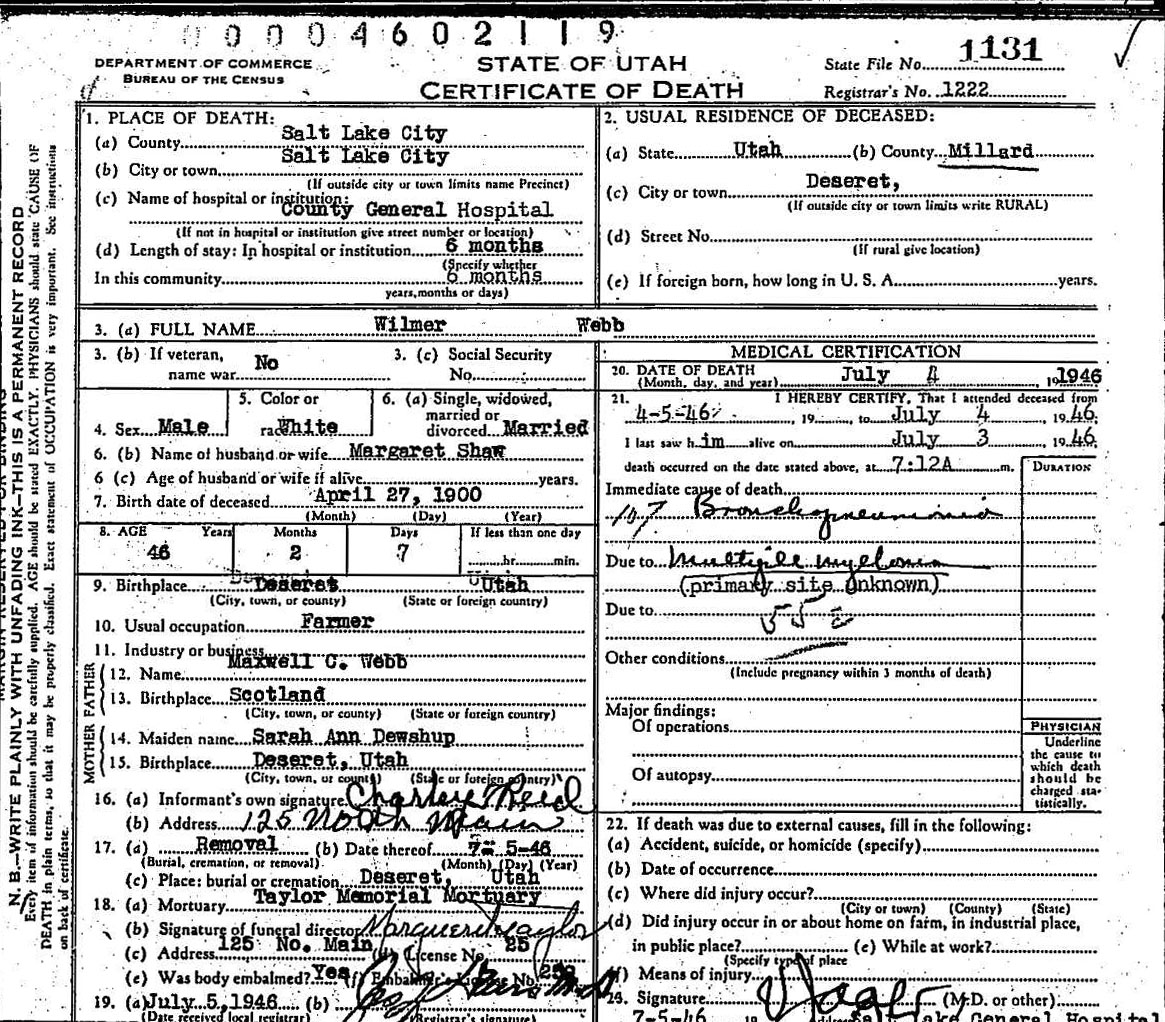 00004602119
DEPARTMENT OF COMMERCE
BUREAU OF THE CENSUS
STATE OF UTAH
CERTIFICATE OF DEATH
State File No. 1131
Registrar's No. 1222
N. B.—WRITE PLAINLY WITH UNFADING INK—THIS IS A PERMANENT RECORD
Every item of information should be carefully supplied. AGE should be stated EXACTLY. PHYSICIANS should state CAUSE OF
DEATH in plain terms, so that it may be properly classified. Exact statement of OCCUPATION is very important. See instructions
on back of certificate.
1. PLACE OF DEATH:
(a) County Salt Lake City
(b) City or town Salt Lake City
(If outside city or town limits name Precinct)
(c) Name of hospital or institution:
County General Hospital
(If not in hospital or institution give street number or location)
(d) Length of stay: In hospital or institution 6 months
(Specify whether
In this community 6 months
years, months or days)
2. USUAL RESIDENCE OF DECEASED:
(a) State Utah (b) County Millard
(c) City or town Deseret,
(If outside city or town limits write RURAL)
(d) Street No.
(If rural give location)
(e) If foreign born, how long in U. S. A. years.
3. (a) FULL NAME Wilmer Webb
3. (b) If veteran, name war No
3. (c) Social Security No.
4. Sex Male
5. Color or race White
6. (a) Single, widowed, married or divorced Married
6. (b) Name of husband or wife Margaret Shaw
6 (c) Age of husband or wife if alive years.
7. Birth date of deceased April 27, 1900
(Month) (Day) (Year)
8. AGE Years Months Days If less than one day
46 2 7 hr. min.
9. Birthplace Deseret Utah
(City, town, or county) (State or foreign country)
10. Usual occupation Farmer
11. Industry or business
FATHER
12. Name Maxwell C. Webb
13. Birthplace Scotland
(City, town, or county) (State or foreign country)
MOTHER
14. Maiden name Sarah Ann Dewshup
15. Birthplace Deseret, Utah
(City, town, or county) (State or foreign country)
16. (a) Informant's own signature Charley Reid
(b) Address 125 North Main
17. (a) Removal (b) Date thereof 7- 5-46
(Burial, cremation, or removal) (Month) (Day) (Year)
(c) Place: burial or cremation Deseret, Utah
18. (a) Mortuary Taylor Memorial Mortuary
(b) Signature of funeral director Marguerite Taylor
(c) Address 125 No. Main (d) License No. 25
(e) Was body embalmed? Yes (f) Embalmer's License No.
19. (a) July 5, 1946 (b)
(Date received local registrar) (Registrar's signature)
MEDICAL CERTIFICATION
20. DATE OF DEATH
(Month, day, and year) July 4, 1946
21. I HEREBY CERTIFY, That I attended deceased from
4-5-46, 19 , to July 4 1946,
I last saw him alive on July 3 1946,
death occurred on the date stated above, at 7:12A m.
DURATION
Immediate cause of death
107 Bronchopneumonia
Due to Multiple myeloma
(primary site unknown)
Due to 55
Other conditions
(Include pregnancy within 3 months of death)
Major findings:
Of operations
Of autopsy
PHYSICIAN
Underline
the cause to
which death
should be
charged sta-
tistically.
22. If death was due to external causes, fill in the following:
(a) Accident, suicide, or homicide (specify)
(b) Date of occurrence
(c) Where did injury occur?
(City or town) (County) (State)
(d) Did injury occur in or about home on farm, in industrial place,
in public place? (e) While at work?
(Specify type of place
(f) Means of injury
Signature (M.D. or other)
7-5-46 19 Address Salt Lake General Hospital